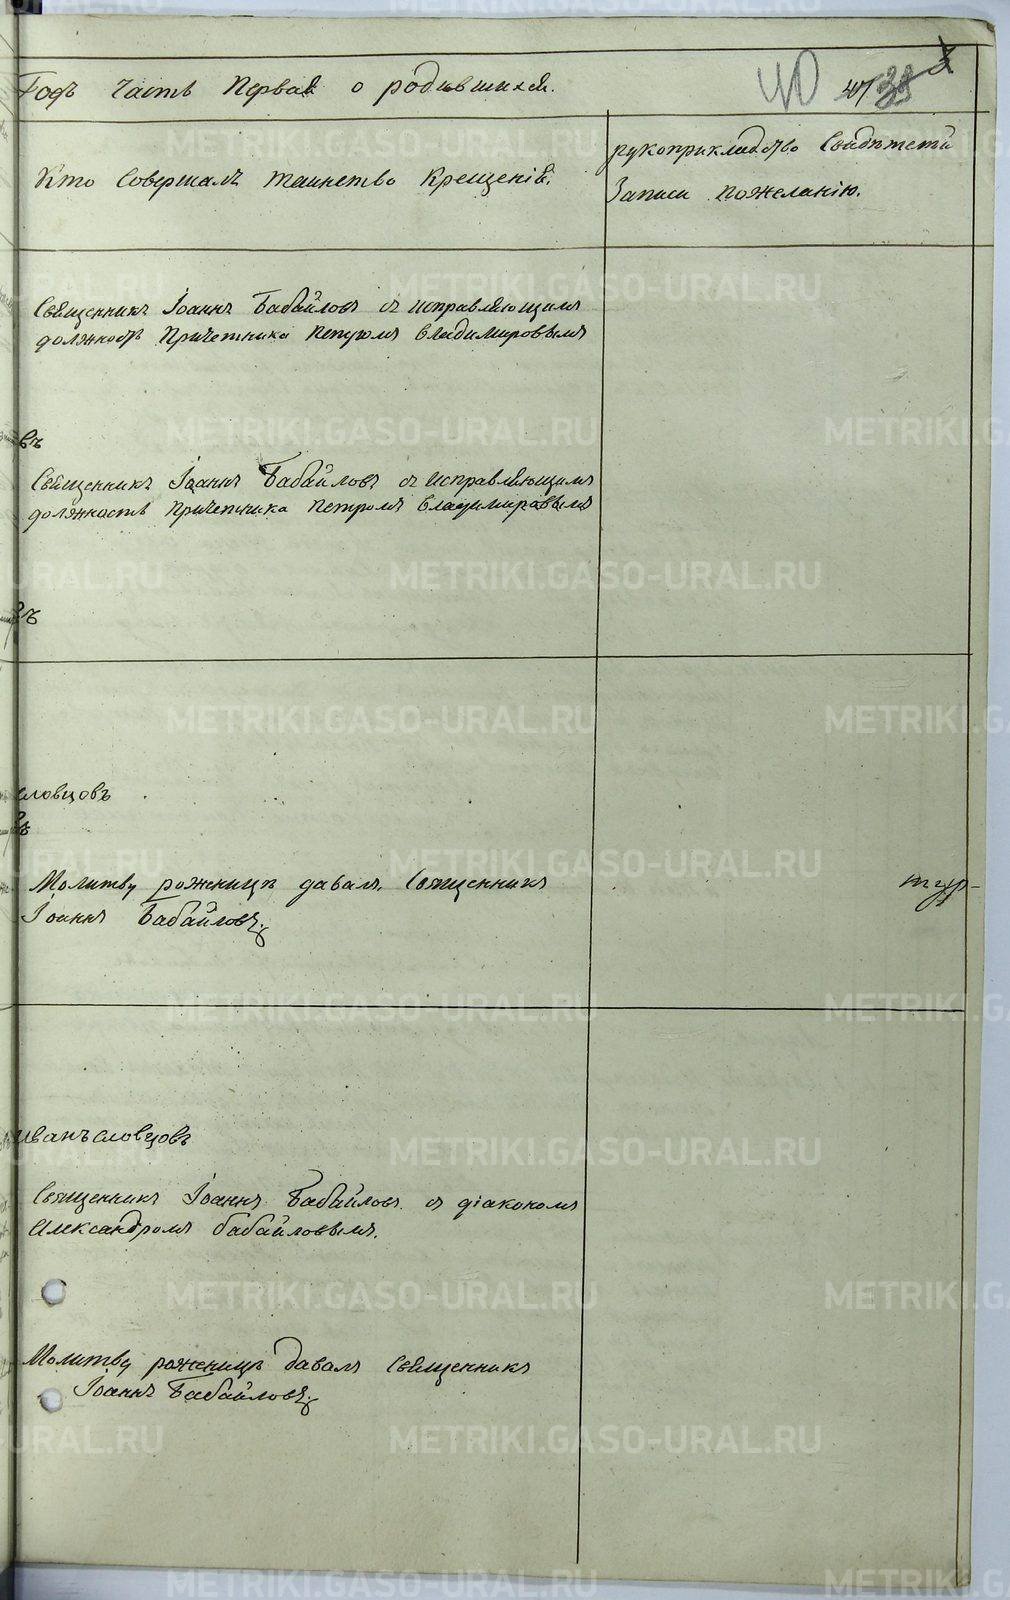 Годъ часть Первая о родившихся.
40 41 39
Кто совершалъ таинство крещенія.
рукоприкладство свидѣтелей
записи пожеланію.
Священникъ Іоаннъ Бабайловъ съ исправляющимъ
должность Причетника Петромъ Владимировымъ
въ
Священникъ Іоаннъ Бабайловъ съ исправляющимъ
должность Причетника Петромъ Владимировымъ
въ
словцовъ
Молитву роженицѣ давалъ Священникъ
Іоаннъ Бабайловъ.
тур-
иванъ словцовъ
Священникъ Іоаннъ Бабайловъ съ діакономъ
Александромъ бабайловымъ.
Молитву роженицѣ давалъ Священникъ
Іоаннъ Бабайловъ.
METRIKI.GASO-URAL.RU